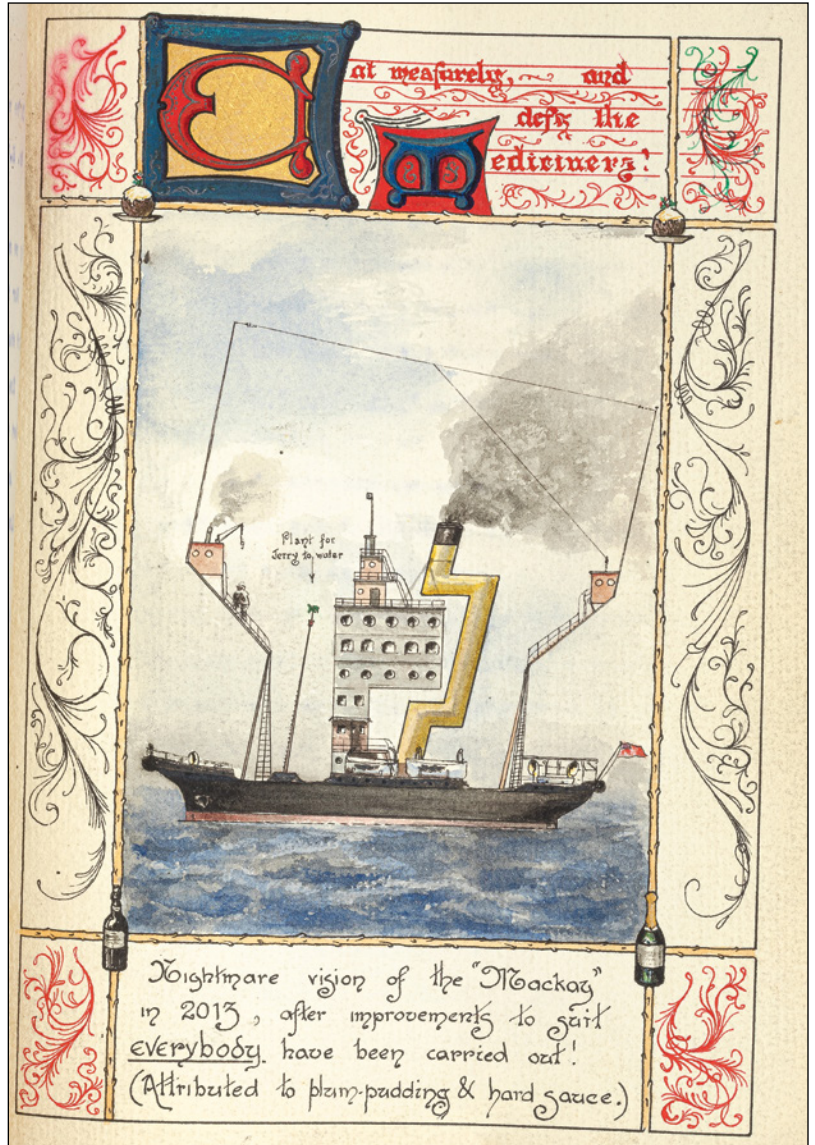 Eat measurely, and
defy the
Mediciners!
Plant for
Jerry to water
Nightmare vision of the "Mackay"
in 2013, after improvements to suit
everybody have been carried out!
(Attributed to plum-pudding & hard sauce.)